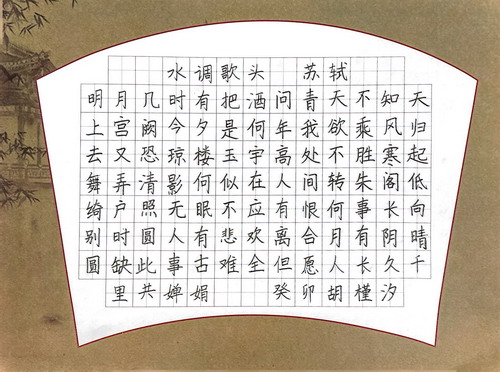 水调歌头 苏轼
明月几时有把酒问青天不知天
上宫阙今夕是何年我欲乘风归
去又恐琼楼玉宇高处不胜寒起
舞弄清影何似在人间转朱阁低
绮户照无眠不应有恨何事长向
别时圆人有悲欢离合月有阴晴
圆缺此事古难全但愿人长久千
里共婵娟 癸卯胡槿汐